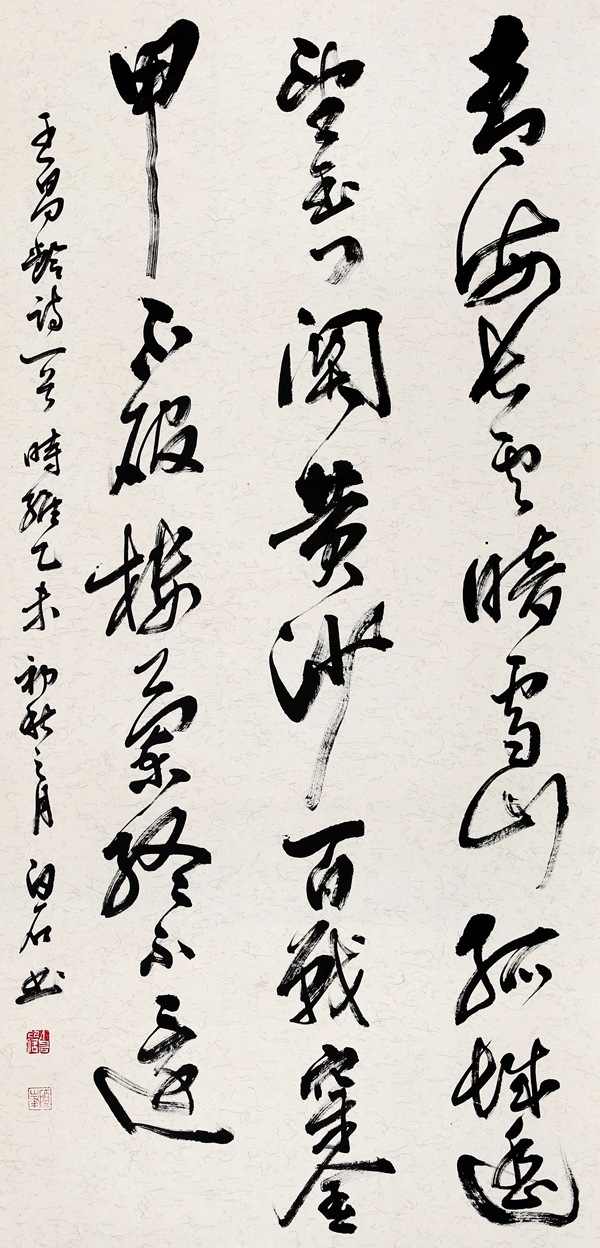 青海长云暗雪山孤城遥
望玉门关黄沙百战穿金
甲不破楼兰终不还
王昌龄诗一首时维乙未初秋之月白石书